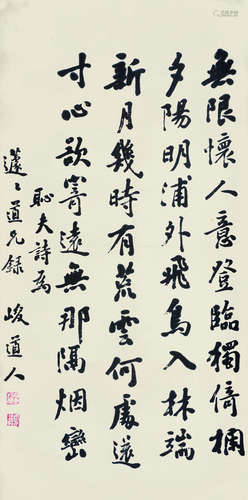 無限懷人意登臨獨倚欄
夕陽明浦外飛鳥入林端
新月幾時有荒雲何處還
寸心欲寄遠無那隔烟巒
恥夫詩為
蘧〻道兄錄 峻道人